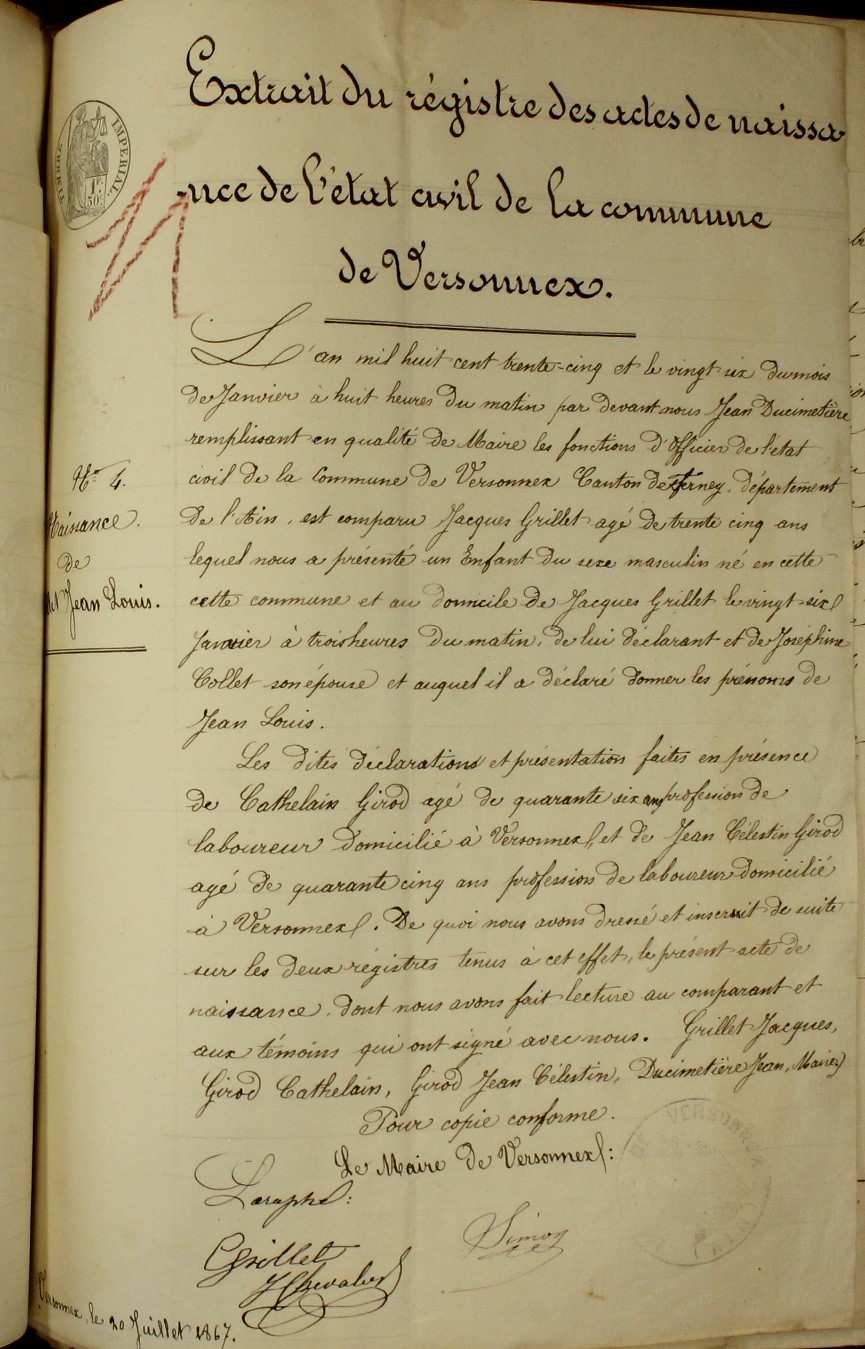 Extrait du régistre des actes de naissa
-nce de l'état civil de la commune
de Versonnex.
TIMBRE IMPERIAL
1F.
50C.
L'an mil huit cent trente-cinq et le vingt six du mois
de Janvier à huit heures du matin par devant nous Jean Ducimetière
remplissant en qualité de Maire les fonctions d'Officier de l'état
civil de la Commune de Versonnex Canton de Ferney, département
De l'Ain, est comparu Jacques Grillet agé de trente cinq ans
lequel nous a présenté un Enfant du sexe masculin né en cette
cette commune et au domicile de Jacques Grillet le vingt-six
Janvier à trois heures du matin, de lui déclarant et de Joséphine
Collet son épouse et auquel il a déclaré donner les prénoms de
Jean Louis.
N° 4.
Naissance.
de
Jean Louis.
Les dites déclarations et présentation faites en présence
de Cathelain Girod agé de quarante six ans profession de
laboureur domicilié à Versonnex, et de Jean Célestin Girod
agé de quarante cinq ans profession de laboureur domicilié
à Versonnex. De quoi nous avons dressé et inscrit de suite
sur les deux régistres tenus à cet effet, le présent acte de
naissance, dont nous avons fait lecture au comparant et
aux témoins qui ont signé avec nous. Grillet Jacques,
Girod Cathelain, Girod Jean Célestin, Ducimetière Jean, Maire
Pour copie conforme.
Le Maire de Versonnex:
Paraphé:
Grillet
JChevalier
Versonnex, le 20 Juillet 1867.